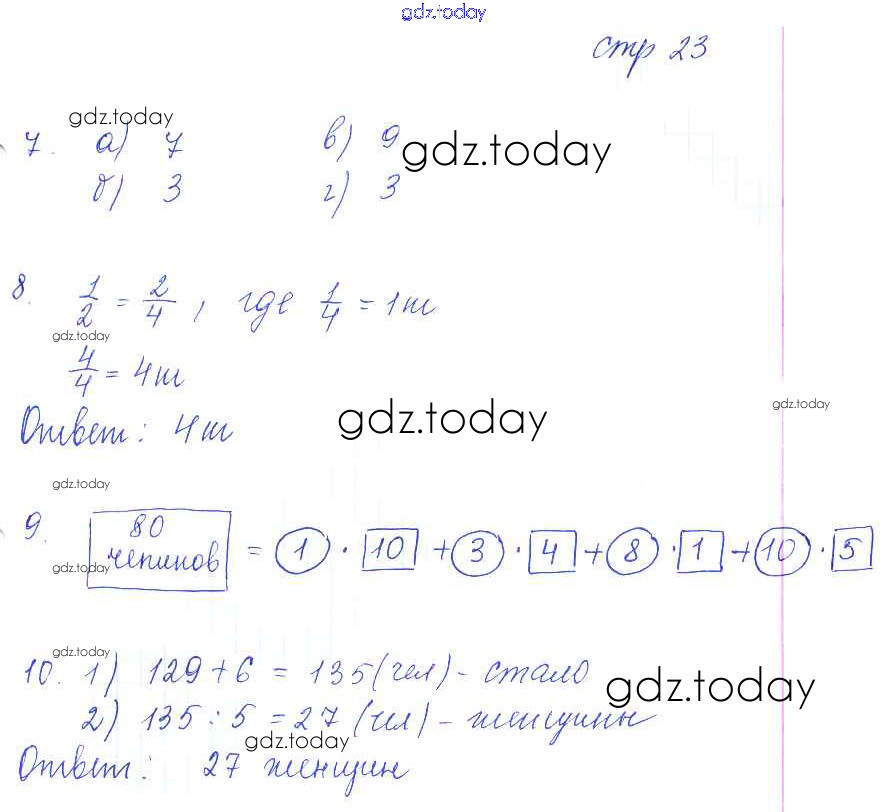 gdz.today
стр 23
gdz.today
7. а) 7 в) 9 gdz.today
б) 3 г) 3
8. 1/2 = 2/4, где 1/4 = 1ш
gdz.today
4/4 = 4ш
Ответ: 4ш gdz.today gdz.today
gdz.today
9. 80 чепинов = 1 · 10 + 3 · 4 + 8 · 1 + 10 · 5
gdz.today
gdz.today
10. 1) 129 + 6 = 135 (чел) - стало gdz.today
2) 135 : 5 = 27 (чел) - женщины
gdz.today
Ответ: 27 женщин